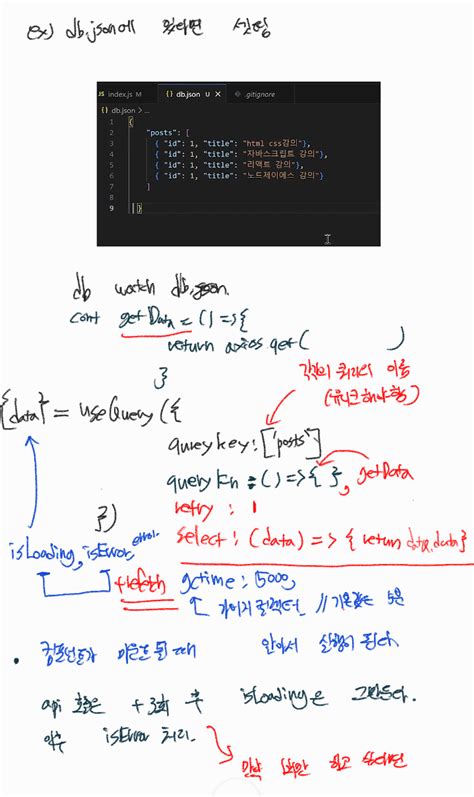 ex) db.json에 있다면 셋팅
JS index.js M {} db.json U X .gitignore
{} db.json > ...
1 {
2 "posts": [
3 { "id": 1, "title": "html css강의"},
4 { "id": 1, "title": "자바스크립트 강의"},
5 { "id": 1, "title": "리액트 강의"},
6 { "id": 1, "title": "노드제이에스 강의"}
7 ]
8
9 }
db watch db.json
const getData = () => {
return axios.get( )
}
각각의 쿼리의 이름
(유니크해야함)
{data} = useQuery({
queryKey : ['posts']
queryFn : () => { }, getData
retry : 1
})
select : (data) => { return data.data}
isLoading, isError, error
refetch gctime : 5000,
가비지 컬렉터 // 기본값은 5분
• 컴포넌트가 마운트 될 때 알아서 실행이 된다.
api 호출은 + 3회 후 isLoading은 그만둔다.
이후 isError 처리.
만약 1회만 하고 싶다면